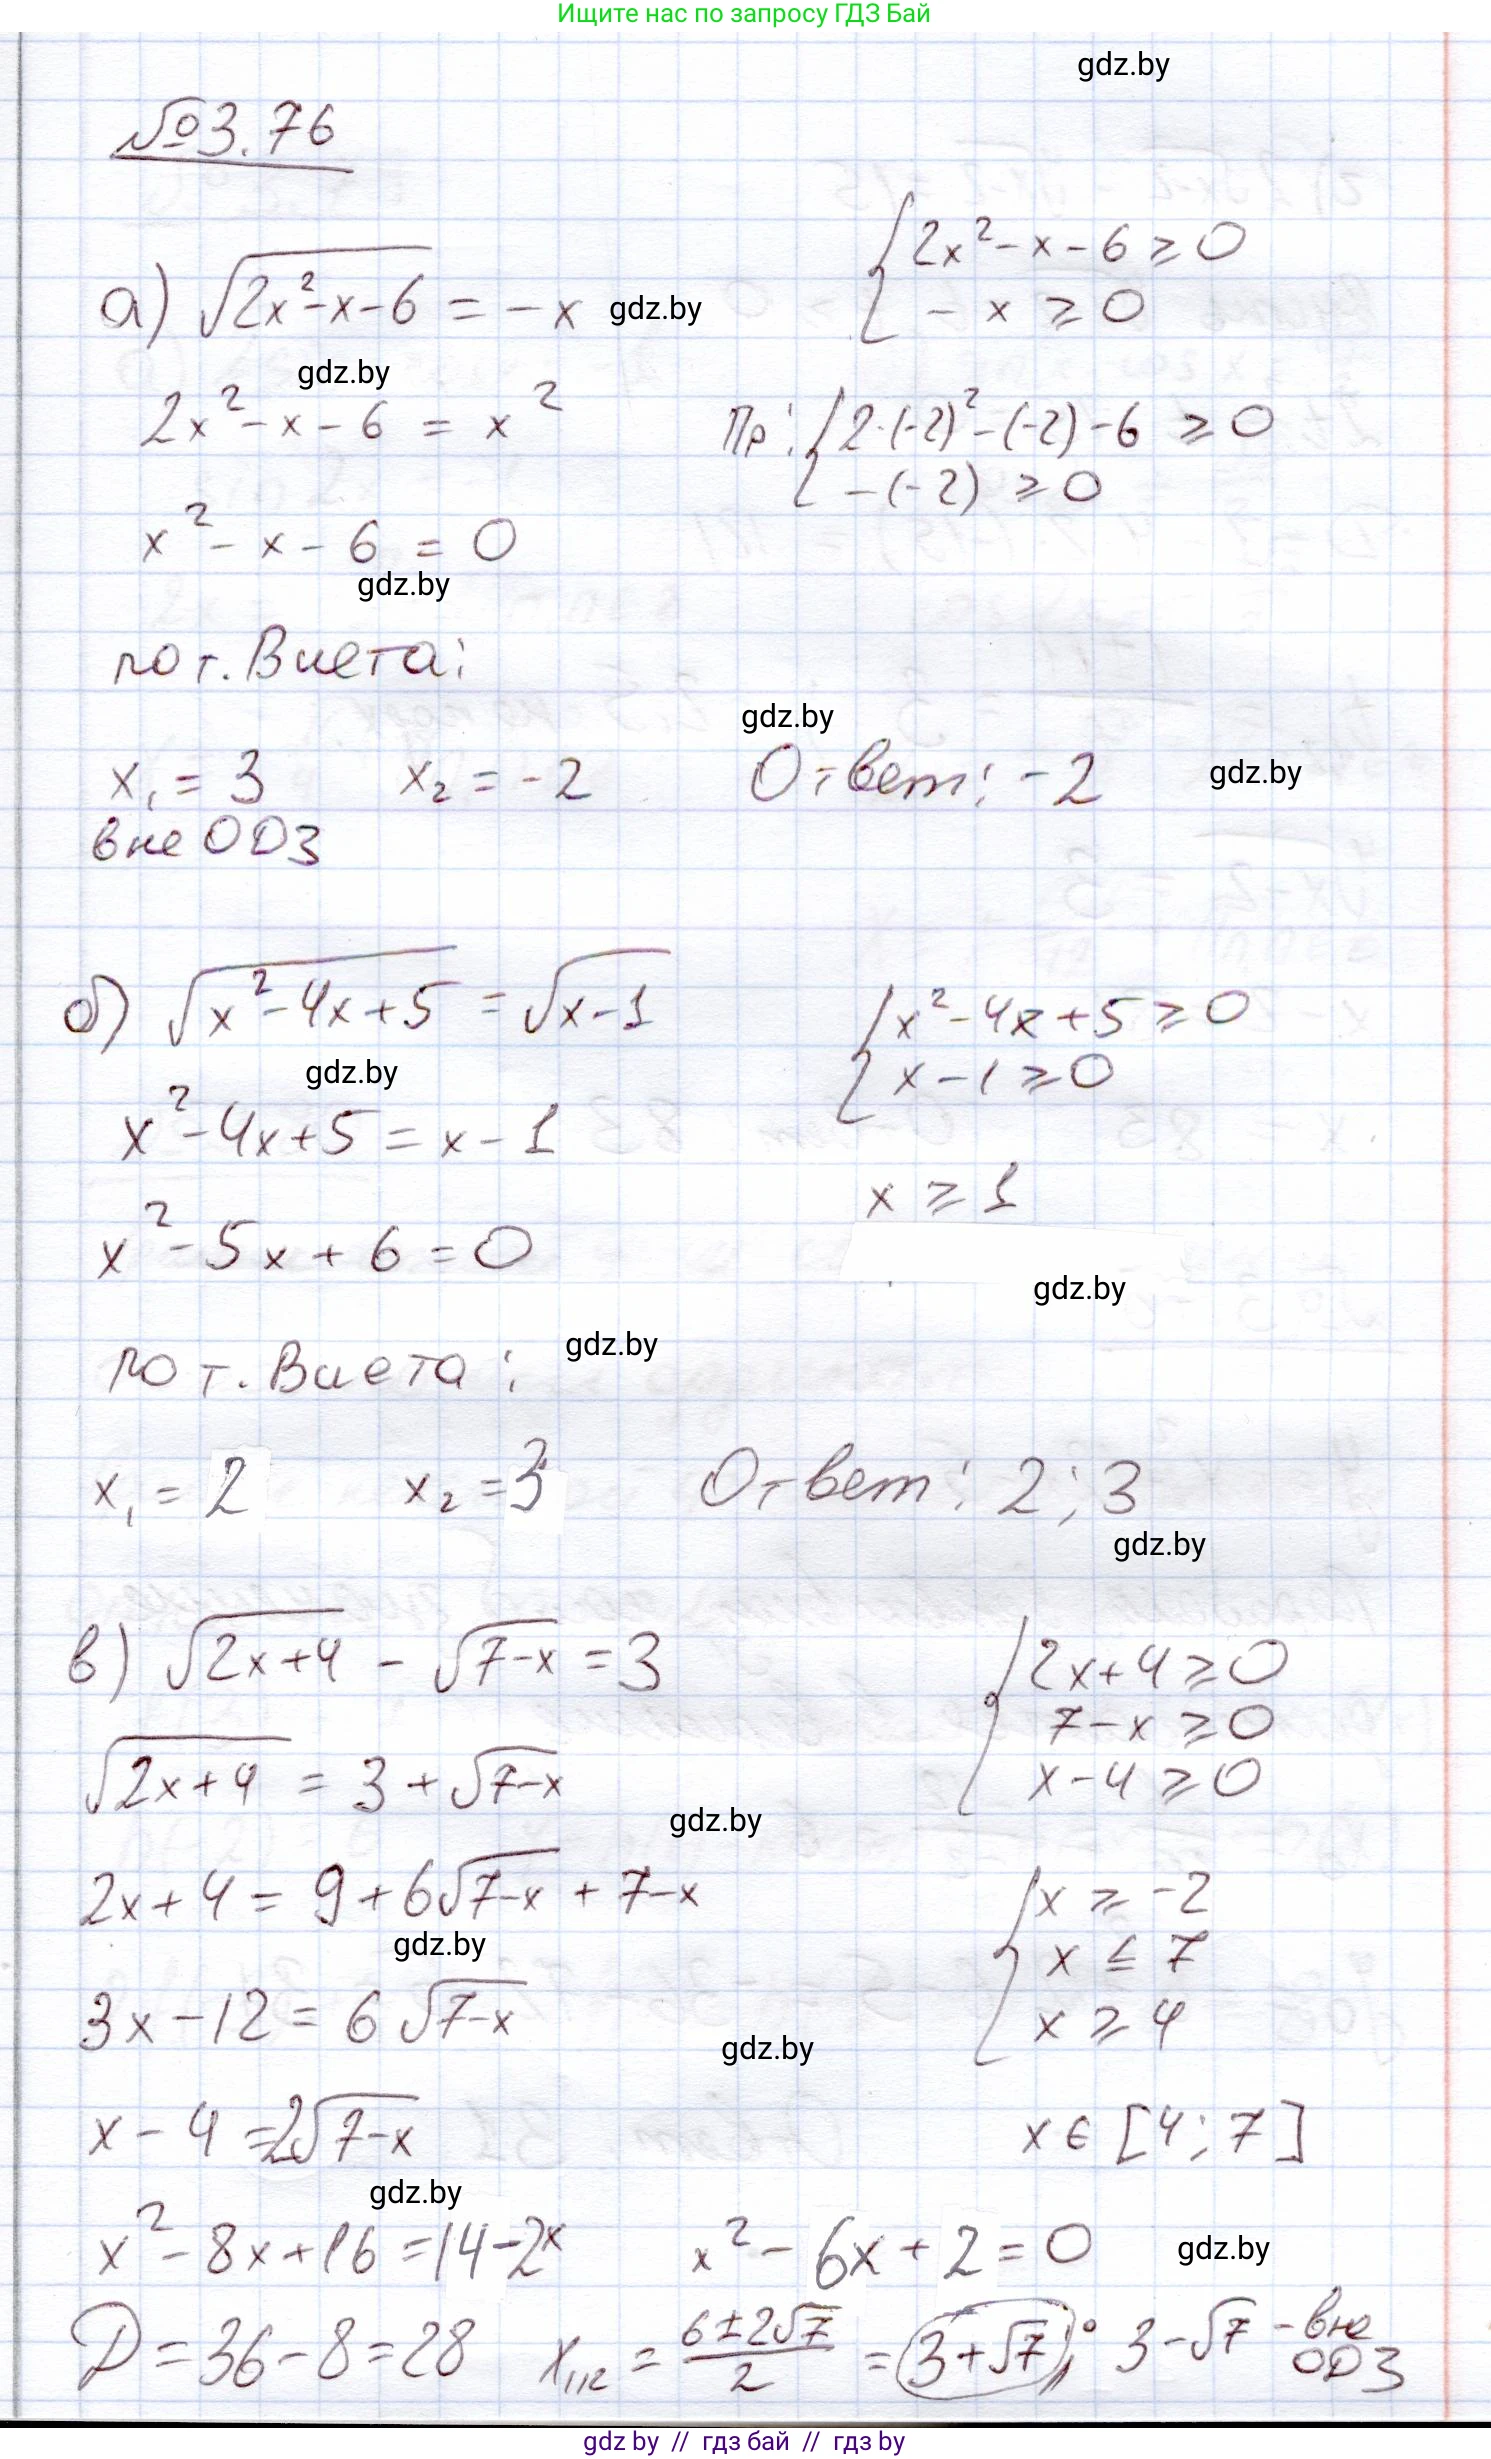 Ищите нас по запросу ГДЗ Бай
gdz.by
№3.76
а) √(2x²-x-6) = -x gdz.by {2x²-x-6 ≥ 0
-x ≥ 0
gdz.by
2x²-x-6 = x² Пр: {2·(-2)²-(-2)-6 ≥ 0
-(-2) ≥ 0
x²-x-6 = 0
gdz.by
по т. Виета:
gdz.by
x₁ = 3 x₂ = -2 Ответ: -2 gdz.by
вне ОДЗ
б) √(x²-4x+5) = √(x-1) {x²-4x+5 ≥ 0
x-1 ≥ 0
gdz.by
x²-4x+5 = x-1
x ≥ 1
x²-5x+6 = 0
gdz.by
по т. Виета: gdz.by
x₁ = 2 x₂ = 3 Ответ: 2; 3
gdz.by
в) √(2x+4) - √(7-x) = 3 {2x+4 ≥ 0
7-x ≥ 0
x-4 ≥ 0
√(2x+4) = 3+√(7-x)
gdz.by
2x+4 = 9+6√(7-x)+7-x {x ≥ -2
x ≤ 7
x ≥ 4
gdz.by
3x-12 = 6√(7-x)
gdz.by
x-4 = 2√(7-x) x ∈ [4; 7]
gdz.by
x²-8x+16 = 14-2x x²-6x+2 = 0 gdz.by
D = 36-8 = 28 x₁,₂ = (6±2√7)/2 = 3+√7; 3-√7 - вне ОДЗ
gdz by // гдз бай // гдз by